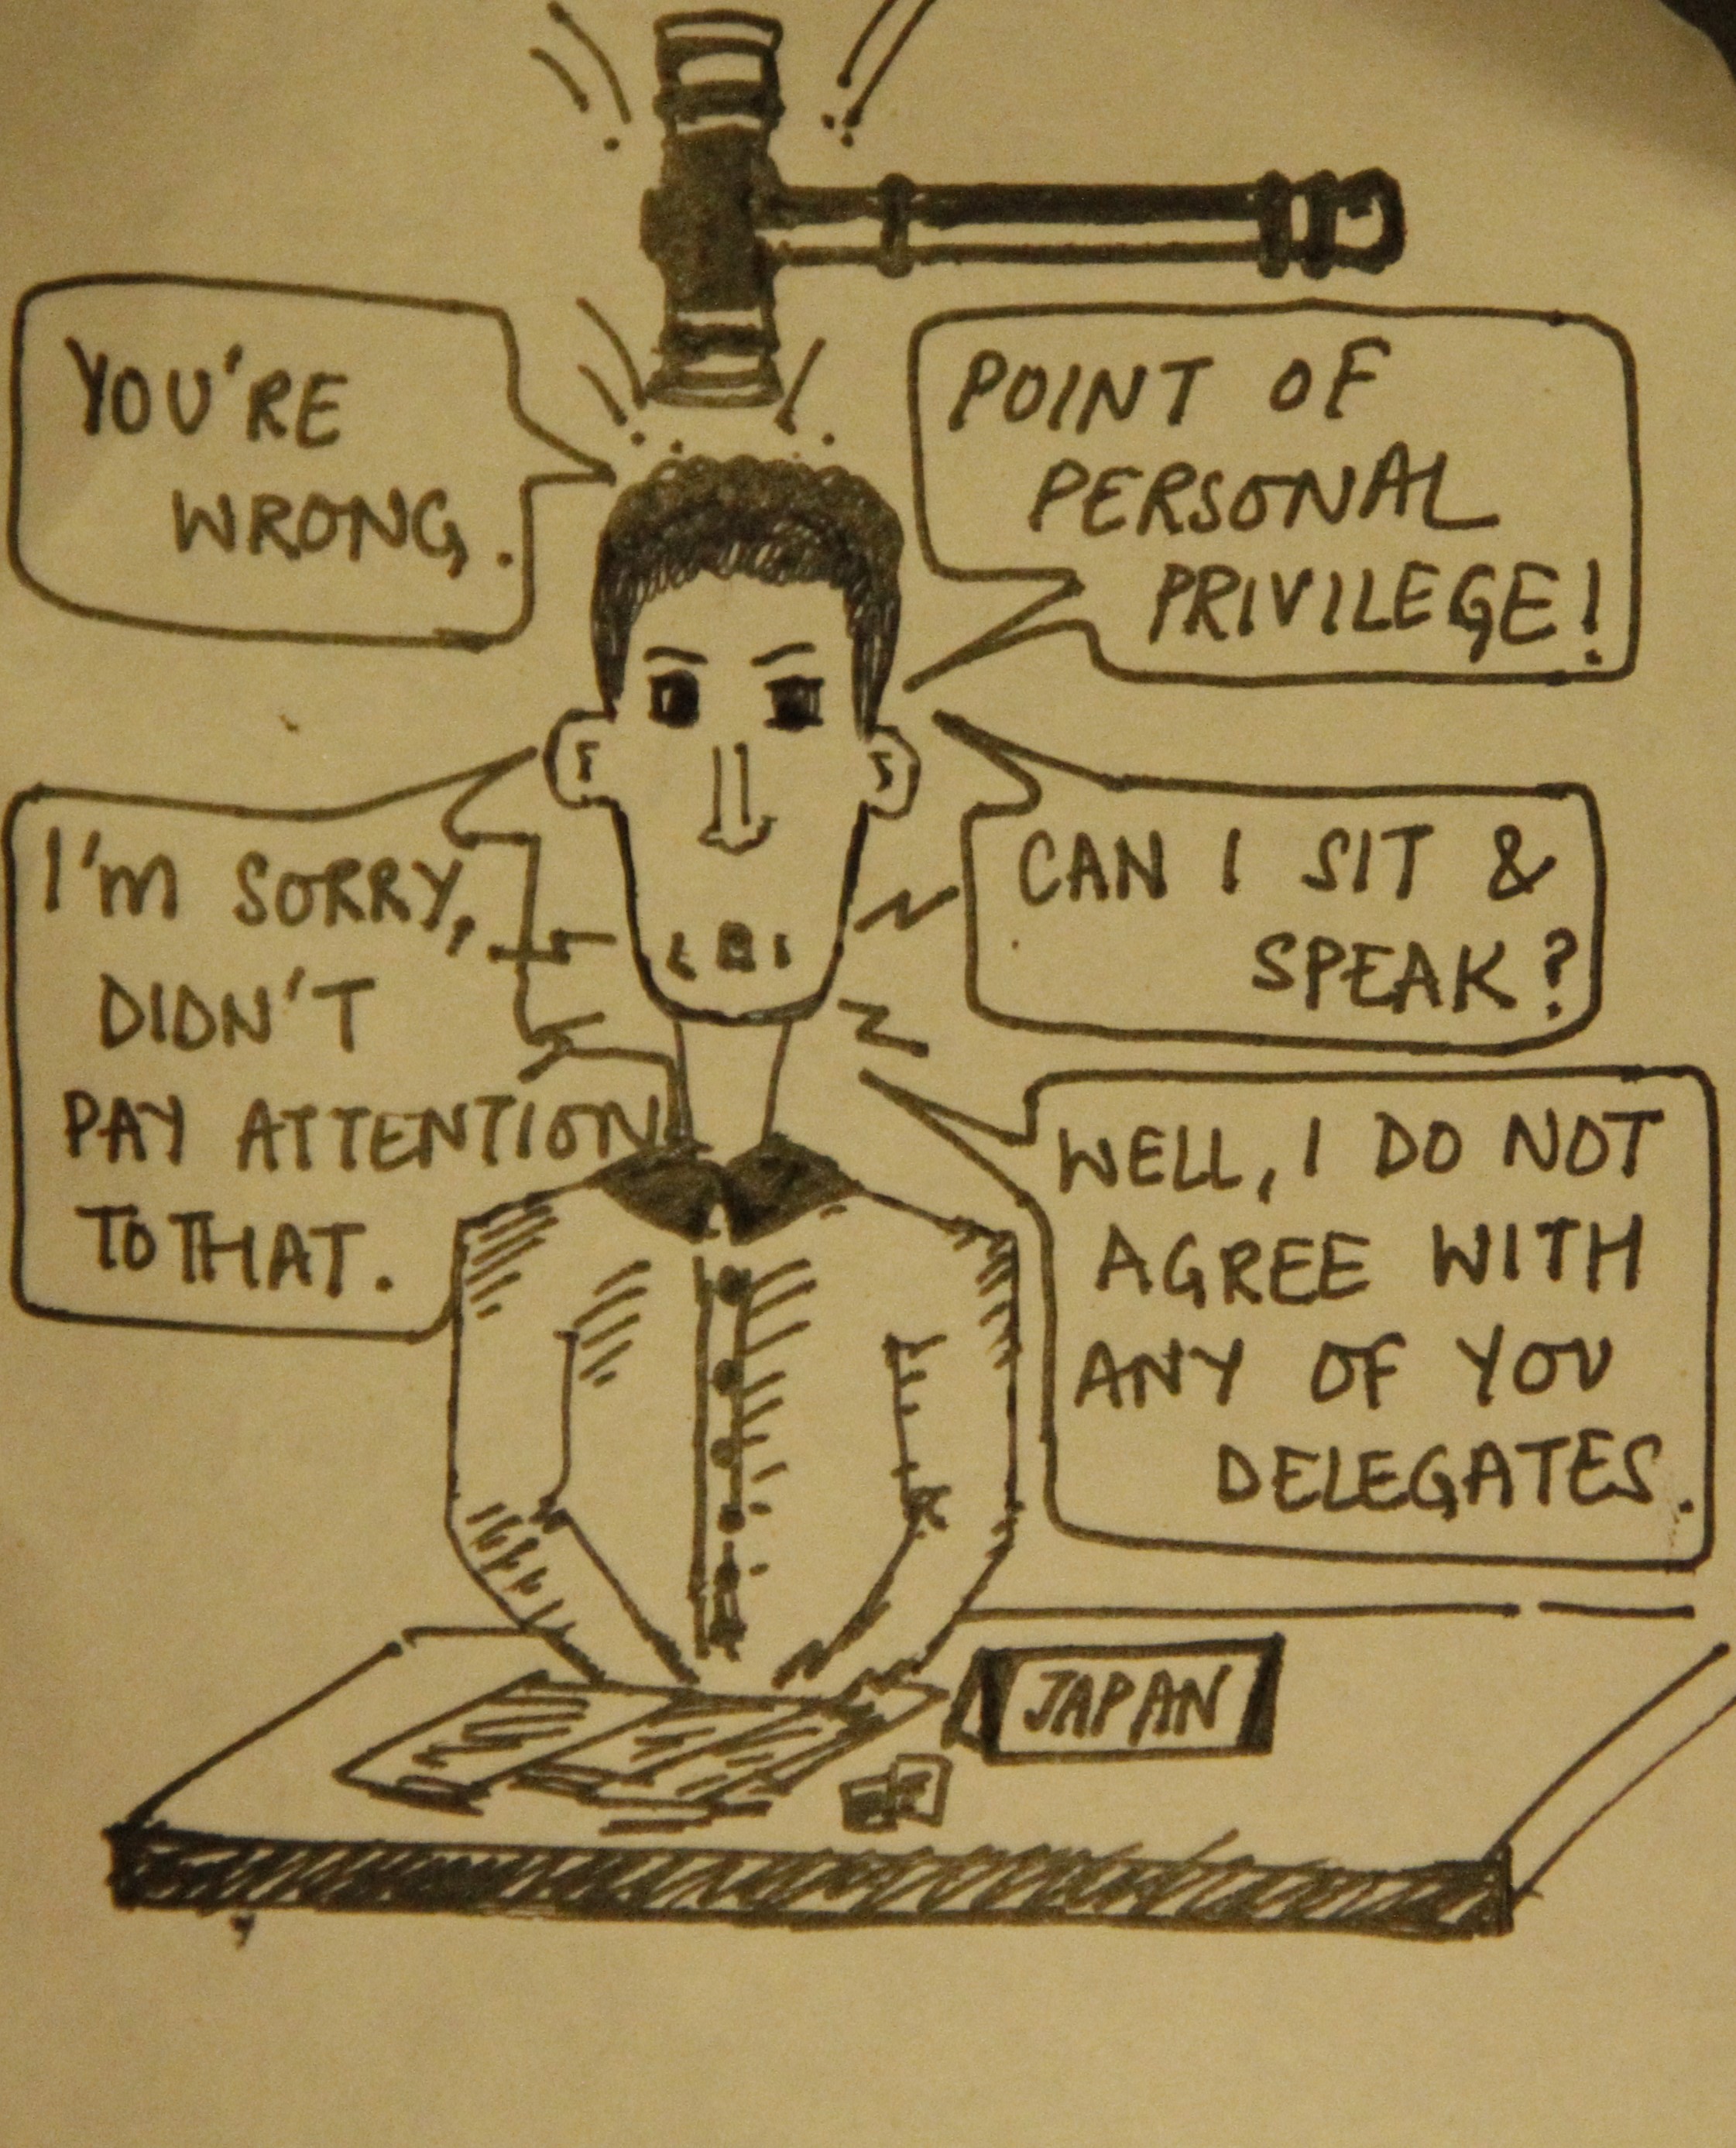 YOU'RE
WRONG.
POINT OF
PERSONAL
PRIVILEGE!
I'M SORRY,
DIDN'T
PAY ATTENTION
TO THAT.
CAN I SIT &
SPEAK?
WELL, I DO NOT
AGREE WITH
ANY OF YOU
DELEGATES.
JAPAN